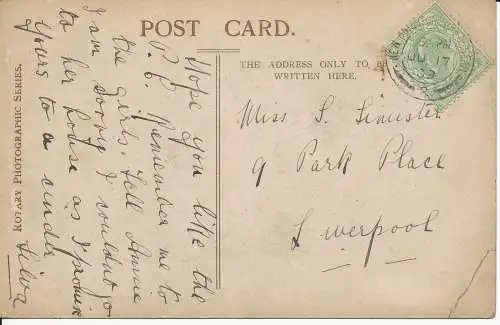 POST CARD.
THE ADDRESS ONLY TO BE
WRITTEN HERE.
ROTARY PHOTOGRAPHIC SERIES.
Hope you like the
P.C. Remember me to
the girls. Tell Annie
I am sorry I couldn't go
to her house as I promise
Yours to a cinder
Silva
Miss S.
9 Park Place
Liverpool
PM
JU 17